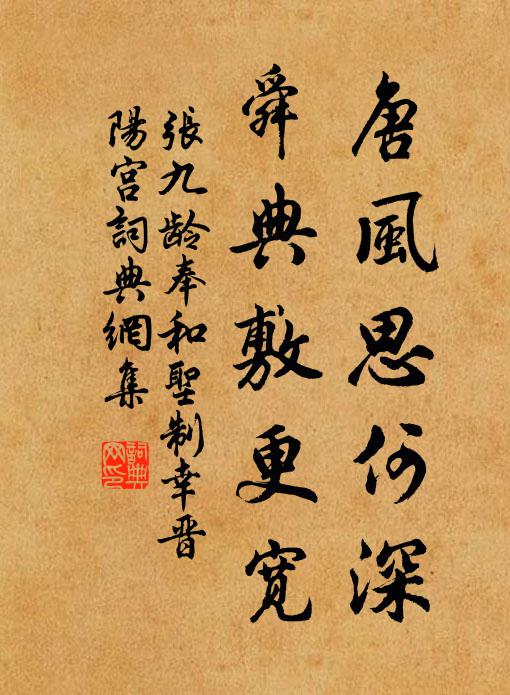 唐風思何深
舜典敷更寬
張九龄奉和聖制幸晉
陽宮詞典網集
詞典网印